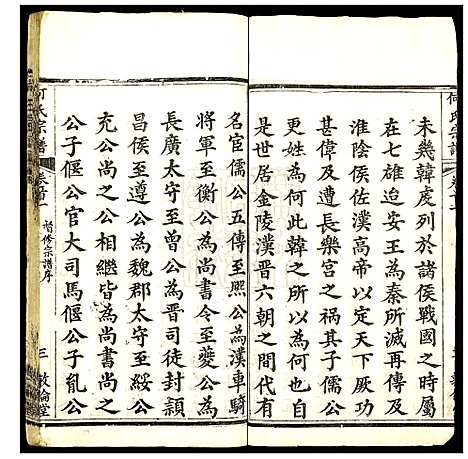 何氏宗譜
未幾韓虔列於諸侯戰國之時屬
在七雄迨安王為秦所滅再傳及
淮陰侯佐漢高帝以定天下厥功
甚偉及遭長樂宮之禍其子儒公
更姓為何此韓之所以為何也于
是世居金陵漢晉六朝之間代有
名宦儒公五傳至熙公為漢車騎
將軍至衡公為尚書令至夔公為
長廣太守至曾公為晉司徒封潁
昌侯至遵公為魏郡太守至綏公
充公尚之公相繼皆為尚書尚之
公子偃公官大司馬偃公子亂公
何氏宗譜
卷首
督修宗譜序
三
敦倫堂